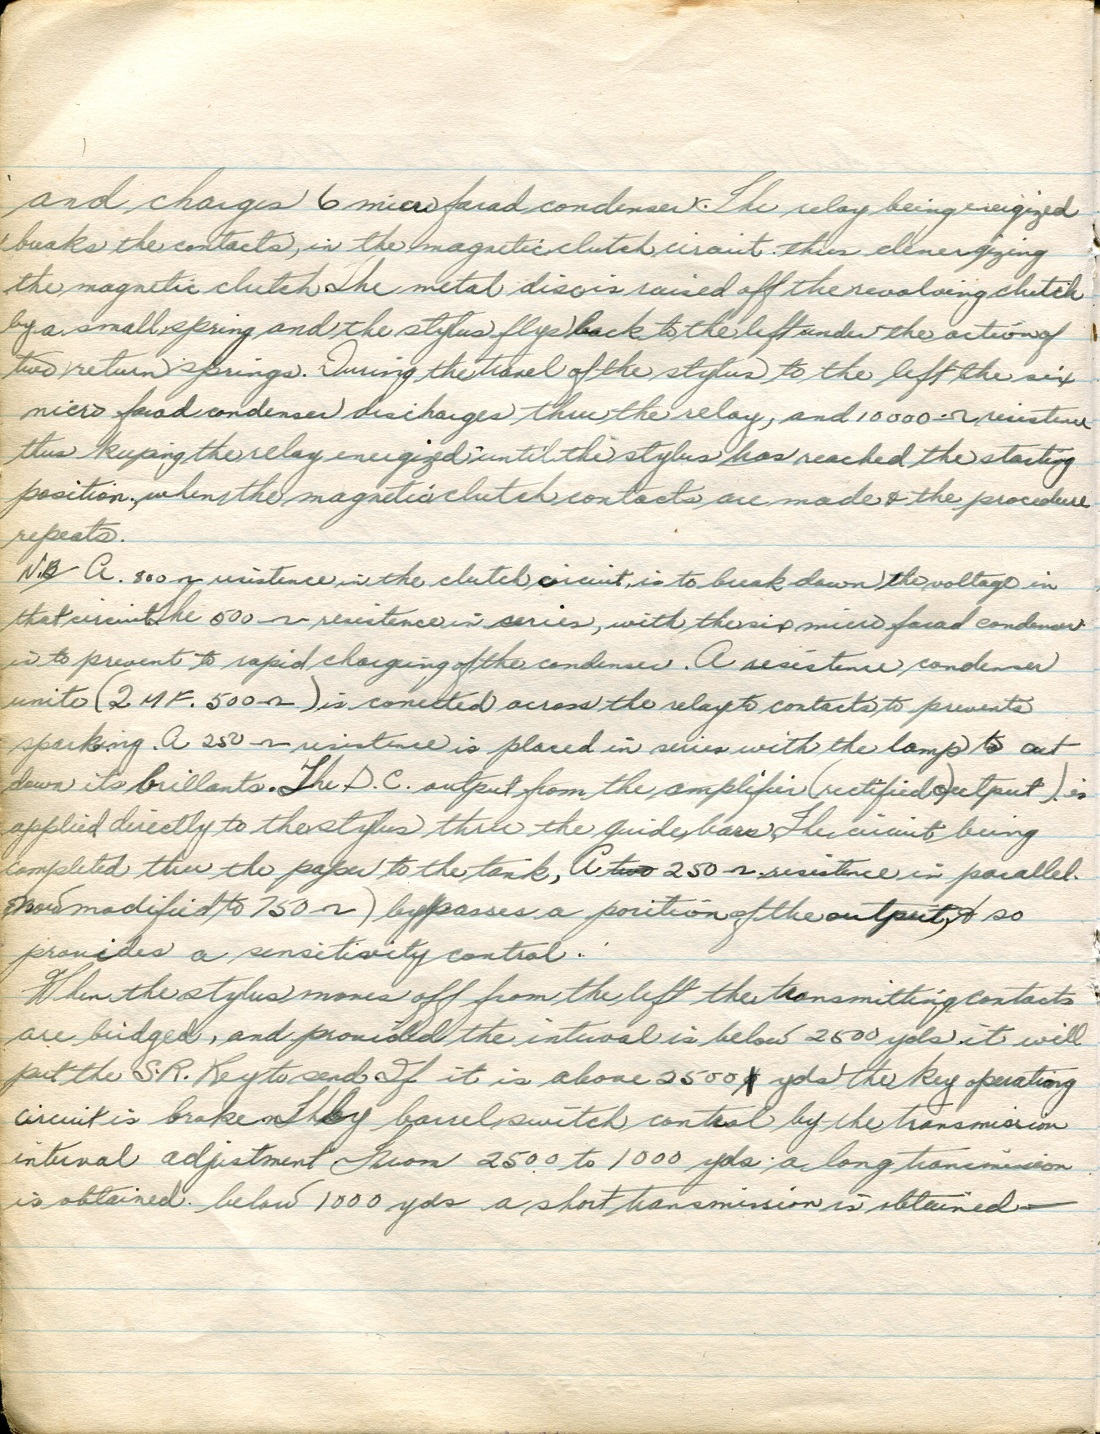 and charges 6 micro farad condenser. The relay being energized
breaks the contacts, in the magnetic clutch circuit. thus denergizing
the magnetic clutch The metal disc is raised off the revolving clutch
by a small spring and the stylus flys back to the left under the action of
two return springs. During the travel of the stylus to the left the six
micro farad condenser discharges thru the relay, and 10000 Ω resistence
thus keeping the relay energized until the stylus has reached the starting
position, when the magnetic clutch contacts are made & the procedure
repeats.
N.B A. 800 Ω resistence in the clutch circuit, is to break down the voltage in
that circuit. The 500 Ω resistence in series, with the six micro farad condenser
is to prevent to rapid charging of the condenser. A resistence condenser
unite (2 MF. 500 Ω) is conected across the relay to contacts to prevents
sparking. A 250 Ω resistence is placed in series with the lamp to cut
down its brillants. The D.C. output from the amplifier (rectified output) is
applied directly to the stylus thru the guide bars, The circuit being
completed thru the paper to the tank, A two 250 Ω resistence in parallel.
(now modified to 750 Ω) bypasses a position of the output, & so
provides a sensitivity control.
When the stylus moves off from the left the transmitting contacts
are bridged, and provided the interval is below 2500 yds. it will
put the S.R. Key to send If it is above 2500 yds the key operating
circuit is broken by barrel switch control by the transmission
interval adjistment From 2500 to 1000 yds. a long transmission
is obtained. below 1000 yds a short transmission is obtained —